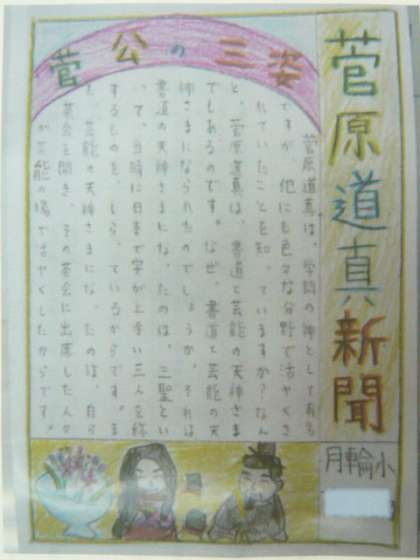 菅原道真新聞
月輪小
菅公の三姿
菅原道真は、学問の神として有名
ですが、他にも色々な分野で活やくさ
れていたことを知っていますか?なん
と、菅原道真は、書道と芸能の天神さま
でもあるのです。なぜ、書道と芸能の天
神さまになられたのでしょうか。それは
書道の天神さまになったのは、三聖とい
って、当時に日本で字が上手い三人を称
するものを、もらっているからです。ま
た、芸能の天神さまになったのは、自ら
茶会を開き、その茶会に出席した人々
が芸能の場で活やくしたからです。